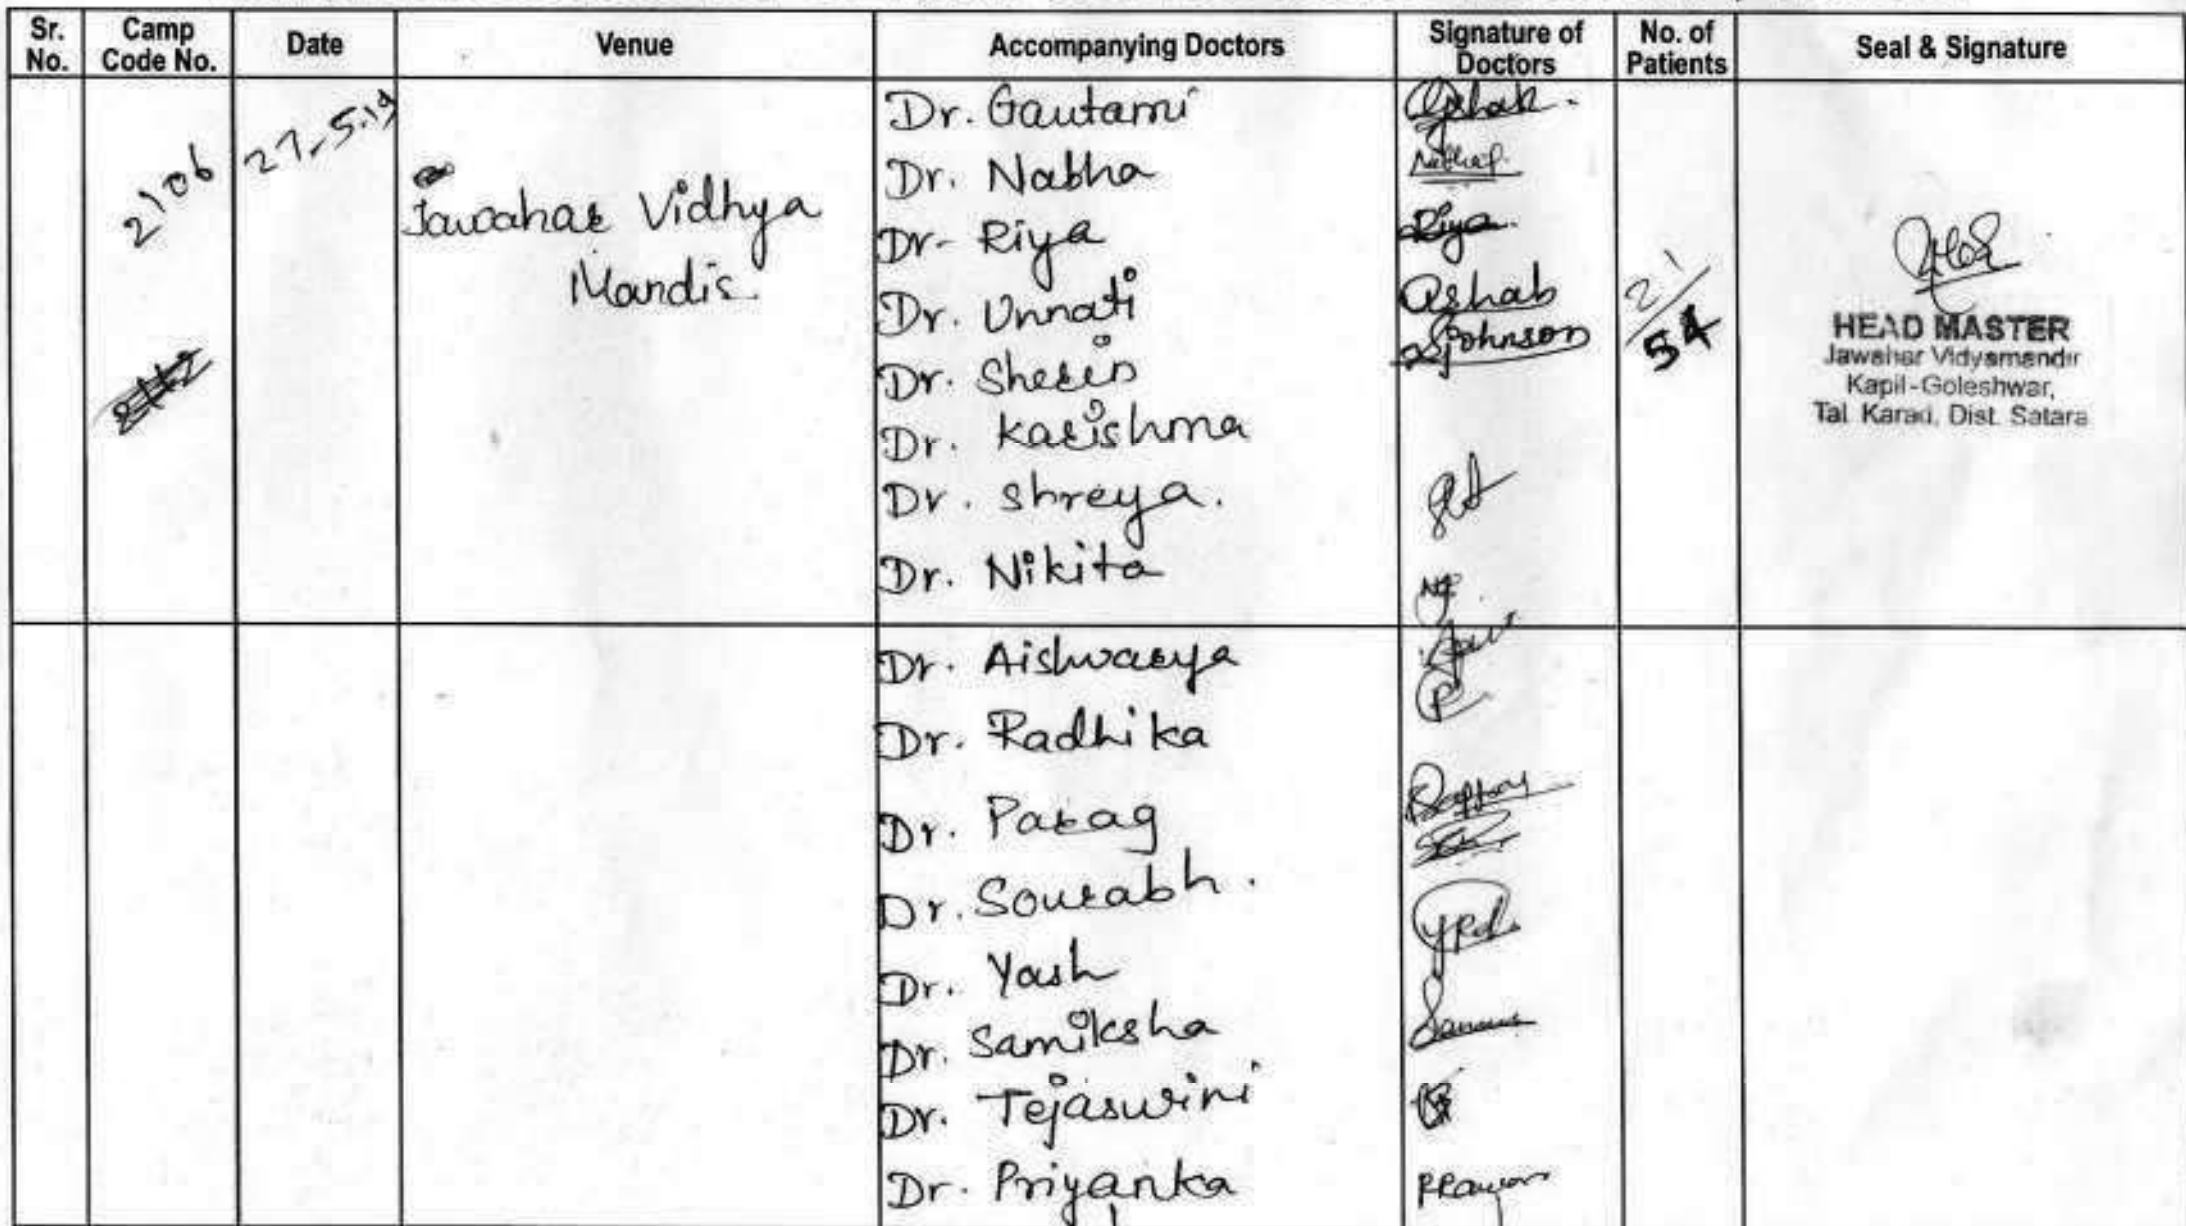 Sr. No. Camp Code No. Date Venue Accompanying Doctors Signature of Doctors No. of Patients Seal & Signature
2106 27-5-19 Jawahar Vidhya Mandir.
Dr. Gautami
Dr. Nabha
Dr- Riya Riya.
Dr. Unnati
Dr. Sherin Johnson
Dr. Karishma
Dr. Shreya.
Dr. Nikita
21/54
HEAD MASTER
Jawahar Vidyamandir
Kapil-Goleshwar,
Tal. Karad, Dist. Satara
Dr. Aishwarya
Dr. Radhika
Dr. Parag
Dr. Sourabh.
Dr. Yash
Dr. Samiksha
Dr. Tejaswini
Dr. Priyanka